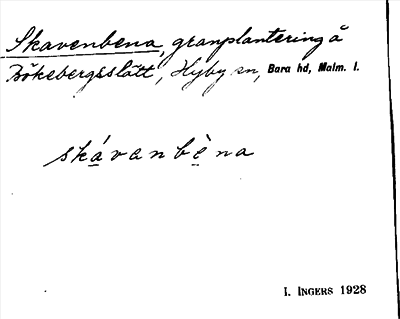 Skavenbena, granplantering å
Bökebergsslätt, Hyby sn, Bara hd, Malm. l.
skávanbèna
I. INGERS 1928